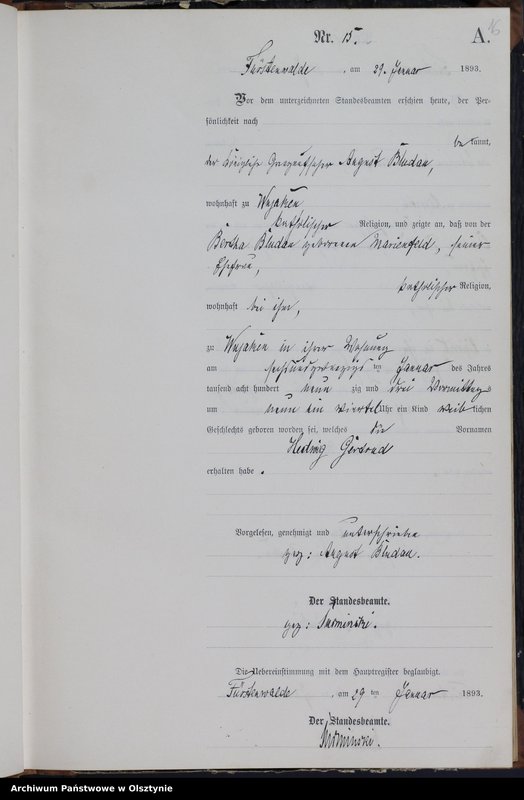 16
Nr. 15.
A.
Fürstenwalde, am 29. Januar 1893.
Vor dem unterzeichneten Standesbeamten erschien heute, der Per-
sönlichkeit nach
be kannt,
der August Bludau,
wohnhaft zu Wujaken
katholischer Religion, und zeigte an, daß von der
Bertha Bludau geborenen Marienfeld, seiner
Ehefrau,
katholischer Religion,
wohnhaft bei ihm,
zu Wujaken in ihrer Wohnung
am sechsundzwanzigsten Januar des Jahres
tausend acht hundert neun zig und drei Vormittags
um neun ein viertel Uhr ein Kind weib lichen
Geschlechts geboren worden sei, welches die Vornamen
Hedwig Gertrud
erhalten habe.
Vorgelesen, genehmigt und unterschrieben
gez: August Bludau.
Der Standesbeamte.
gez:
Die Uebereinstimmung mit dem Hauptregister beglaubigt.
Fürstenwalde, am 29 ten Januar 1893.
Der Standesbeamte.
Archiwum Państwowe w Olsztynie